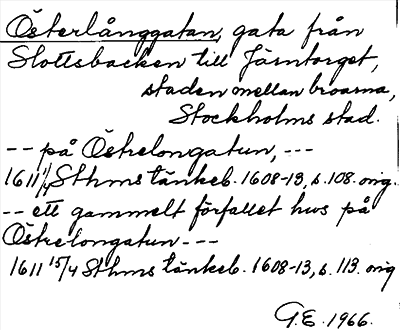 Österlånggatan, gata från
Slottsbacken till Järntorget,
staden mellan broarna,
Stockholms stad.
-- på Östrelongatun, ---
1611 1/4 Sthms tänkeb. 1608-13, s. 108. orig.
-- ett gammelt förfallet hws på
Östrelongatun ---
1611 15/4 Sthms tänkeb. 1608-13, s. 113. orig
G.E. 1966.